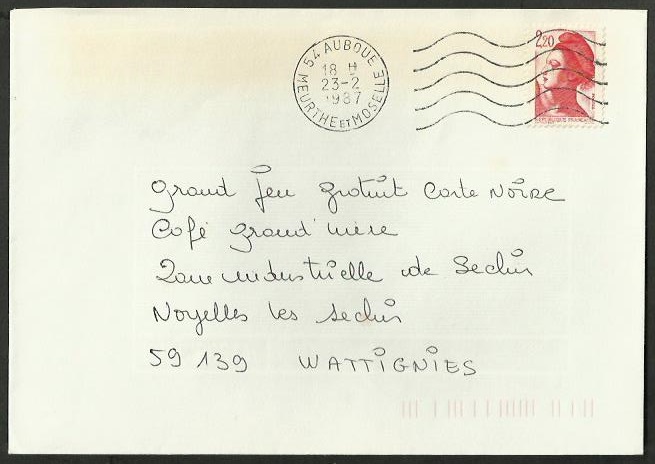 54 AUBOUE
18 H
23-2
1987
MEURTHE ET MOSELLE
2,20
REPUBLIQUE FRANCAISE
Grand Jeu gratuit Carte NOIRE
Café grand'mère
Zone industrielle de Seclin
Noyelles les Seclin
59 139 WATTIGNIES